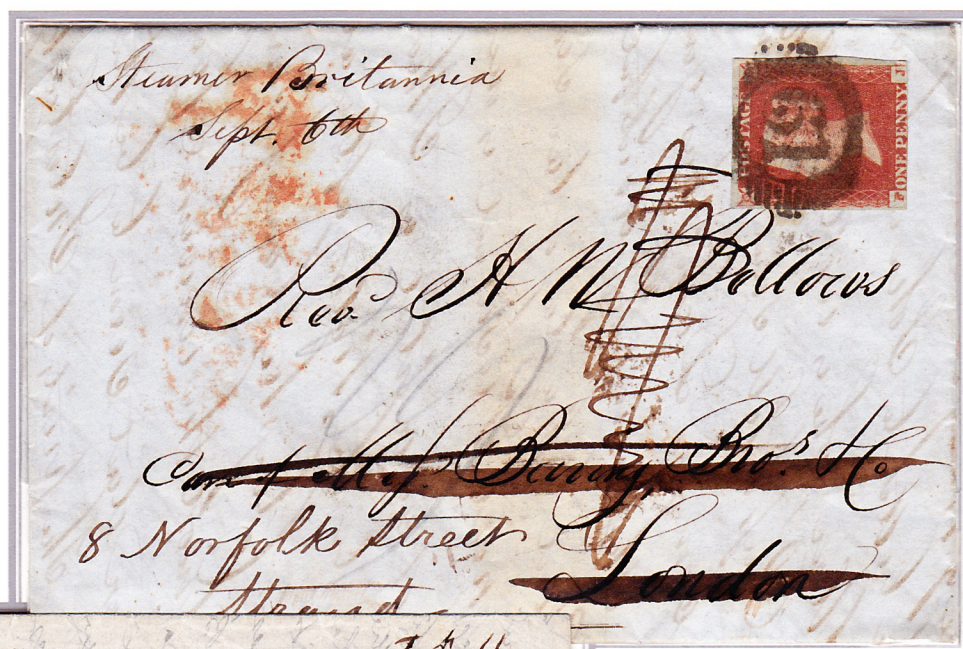 Steamer Britannia
Sept. 6th
POSTAGE
ONE PENNY
J
F
19
Revd. H W Bellows
Care of Mess. Baring, Bros. & Co
London
8 Norfolk Street
Strand